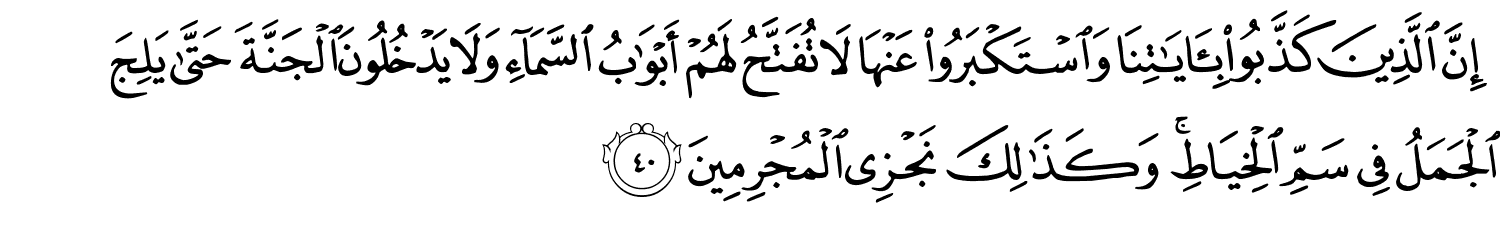 إِنَّ ٱلَّذِينَ كَذَّبُوا۟ بِـَٔايَـٰتِنَا وَٱسْتَكْبَرُوا۟ عَنْهَا لَا تُفَتَّحُ لَهُمْ أَبْوَٰبُ ٱلسَّمَآءِ وَلَا يَدْخُلُونَ ٱلْجَنَّةَ حَتَّىٰ يَلِجَ
ٱلْجَمَلُ فِى سَمِّ ٱلْخِيَاطِ ۚ وَكَذَٰلِكَ نَجْزِى ٱلْمُجْرِمِينَ ٤٠